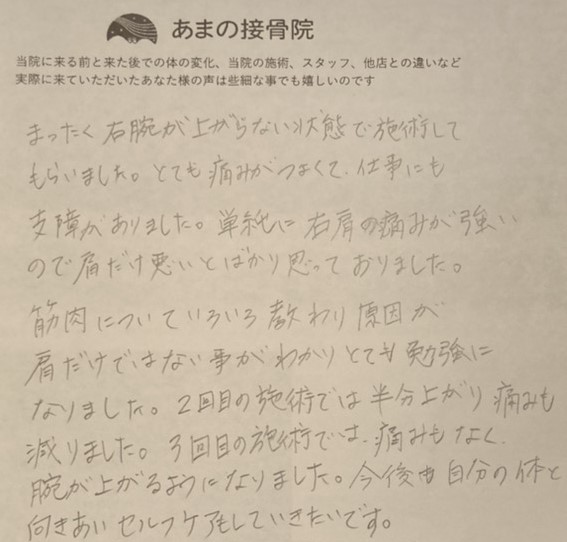 あまの接骨院
当院に来る前と来た後での体の変化、当院の施術、スタッフ、他店との違いなど
実際に来ていただいたあなた様の声は些細な事でも嬉しいのです
まったく右腕が上がらない状態で施術して
もらいました。とても痛みがつよくて、仕事にも
支障がありました。単純に右肩の痛みが強い
ので肩だけ悪いとばかり思っておりました。
筋肉についていろいろ教わり原因が
肩だけではない事がわかりとても勉強に
なりました。2回目の施術では半分上がり痛みも
減りました。3回目の施術では、痛みもなく、
腕が上がるようになりました。今後も自分の体と
向きあいセルフケアもしていきたいです。